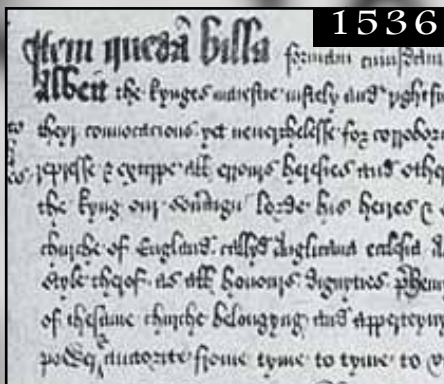 1536
Item quedã billa formam cuiusdam
Albeit the kynges maiestie iustely and ryghtfu
to theyr conuocacions yet neuerthelesse for corrobora
repress & extirpe all errours heresies and othe
the kyng our soueraign lorde his heires &
churche of England callyd Anglicana ecclesia
style therof as all honours dignyties
of thesame churche belongyng and apperteyny
power auctorite frome tyme to tyme to